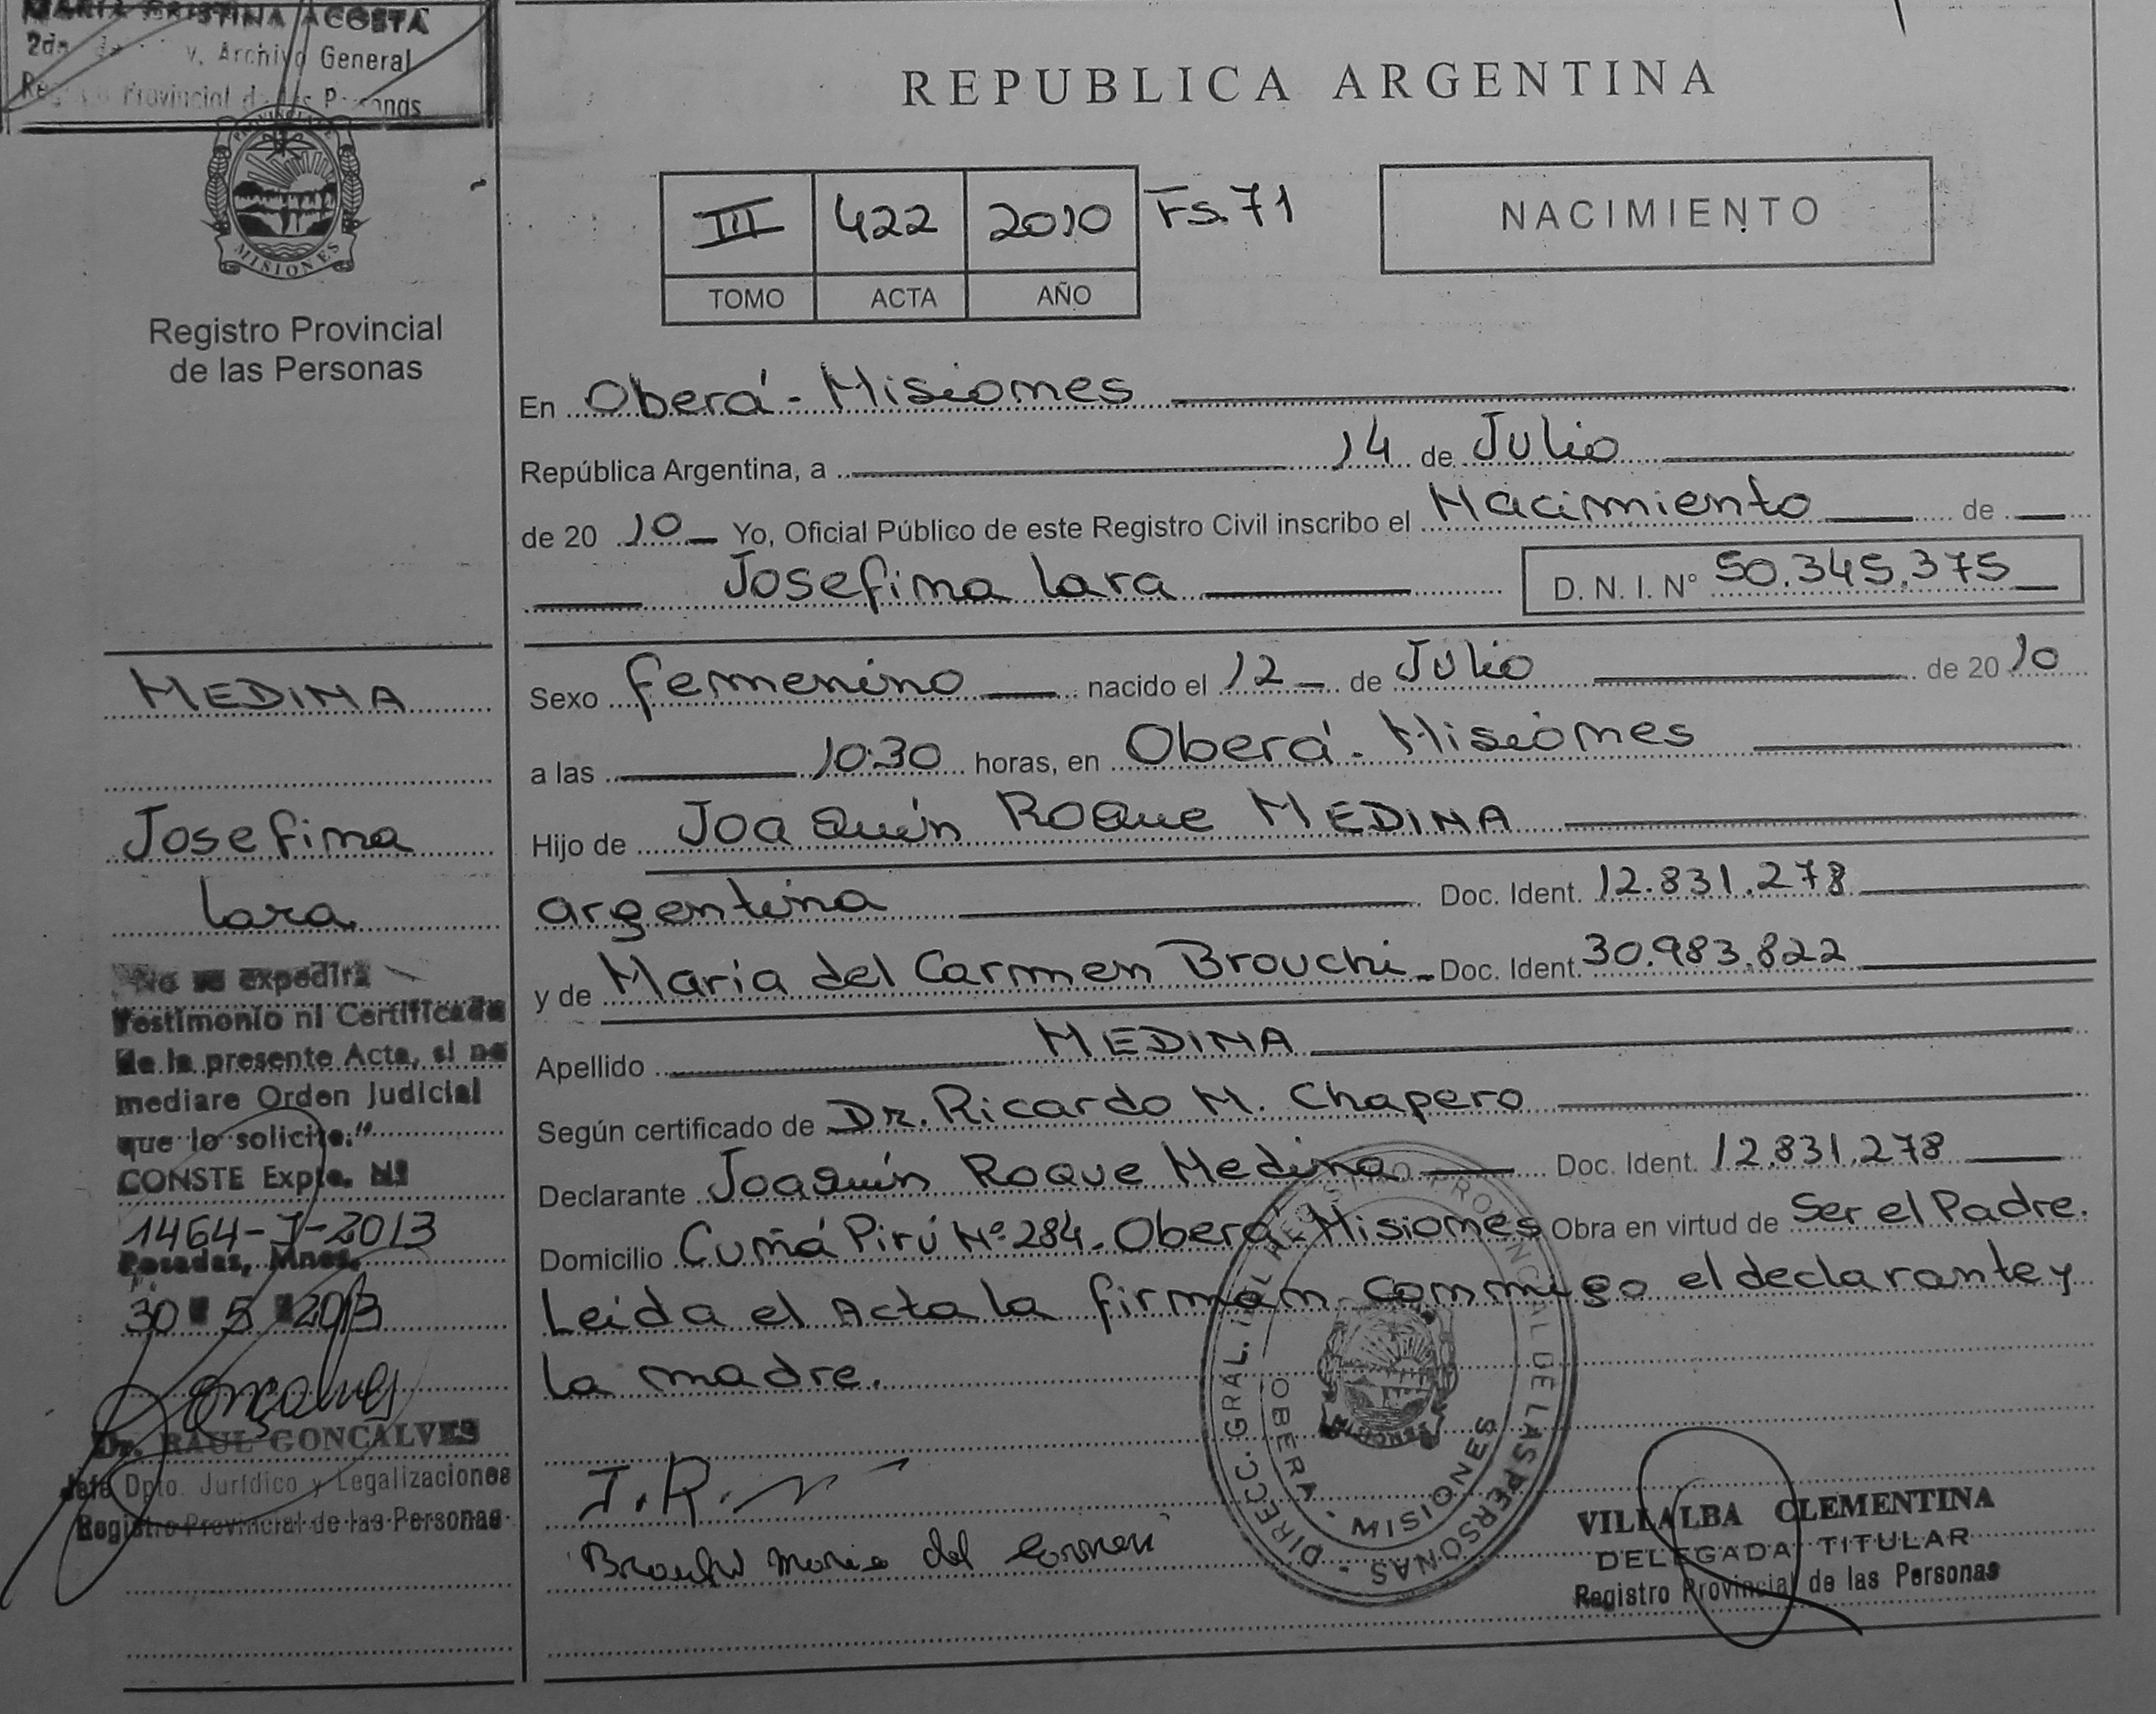 MARIA CRISTINA ACOSTA
v. Archivo General
Provincial de las Personas
PROVINCIA DE
MISIONES
Registro Provincial
de las Personas
MEDINA
Josefina
Lara
"No se expedirá
Testimonio ni Certificado
de la presente Acta, si no
mediare Orden Judicial
que lo solicite."
CONSTE Expte. Nº
1464-J-2013
Posadas, Mnes.
30 5 2013
Goncalves
Dr. RAUL GONCALVES
Jefe Dpto. Jurídico y Legalizaciones
Registro Provincial de las Personas
REPUBLICA ARGENTINA
III 422 2010 Fs. 71
TOMO ACTA AÑO
NACIMIENTO
En Oberá - Misiones
República Argentina, a 14 de Julio
de 20 10 Yo, Oficial Público de este Registro Civil inscribo el Nacimiento de
Josefina Lara D. N. I. N° 50.345.375
Sexo femenino nacido el 12 de Julio de 20 10
a las 10:30 horas, en Oberá - Misiones
Hijo de Joaquín Roque MEDINA
argentina Doc. Ident. 12.831.278
y de María del Carmen Brouchi Doc. Ident. 30.983.822
Apellido MEDINA
Según certificado de Dr. Ricardo M. Chapero
Declarante Joaquín Roque Medina Doc. Ident. 12.831.278
Domicilio Cuñá Pirú Nº 284 - Oberá - Misiones Obra en virtud de Ser el Padre.
Leida el Acta la firman conmigo el declarante y
la madre.
J.R.
Brouchi Maria del Carmen
DIRECC. GRAL. DEL REGISTRO PROVINCIAL DE LAS PERSONAS -
OBERA - MISIONES
VILLALBA CLEMENTINA
DELEGADA TITULAR
Registro Provincial de las Personas